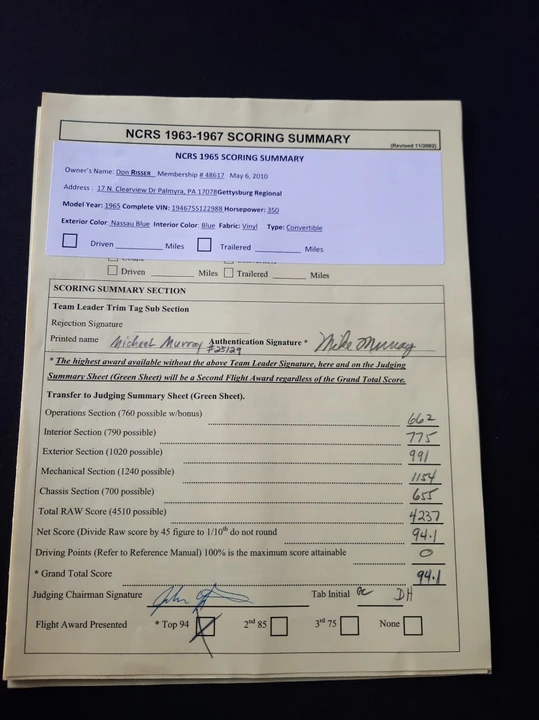 NCRS 1963-1967 SCORING SUMMARY
(Revised 11/2002)
NCRS 1965 SCORING SUMMARY
Owner's Name: Don RISSER Membership # 48617 May 6, 2010
Address : 17 N. Clearview Dr Palmyra, PA 17078 Gettysburg Regional
Model Year: 1965 Complete VIN: 194675S122988 Horsepower: 350
Exterior Color: Nassau Blue Interior Color: Blue Fabric: Vinyl Type: Convertible
Driven Miles Trailered Miles
Driven Miles Trailered Miles
SCORING SUMMARY SECTION
Team Leader Trim Tag Sub Section
Rejection Signature
Printed name Michael Murray Authentication Signature * Mike Murray
#25129
* The highest award available without the above Team Leader Signature, here and on the Judging
Summary Sheet (Green Sheet) will be a Second Flight Award regardless of the Grand Total Score.
Transfer to Judging Summary Sheet (Green Sheet).
Operations Section (760 possible w/bonus) 662
Interior Section (790 possible) 775
Exterior Section (1020 possible) 991
Mechanical Section (1240 possible) 1154
Chassis Section (700 possible) 655
Total RAW Score (4510 possible) 4237
Net Score (Divide Raw score by 45 figure to 1/10th do not round 94.1
Driving Points (Refer to Reference Manual) 100% is the maximum score attainable 0
* Grand Total Score 94.1
Judging Chairman Signature John Tab Initial DH
Flight Award Presented * Top 94 2nd 85 3rd 75 None